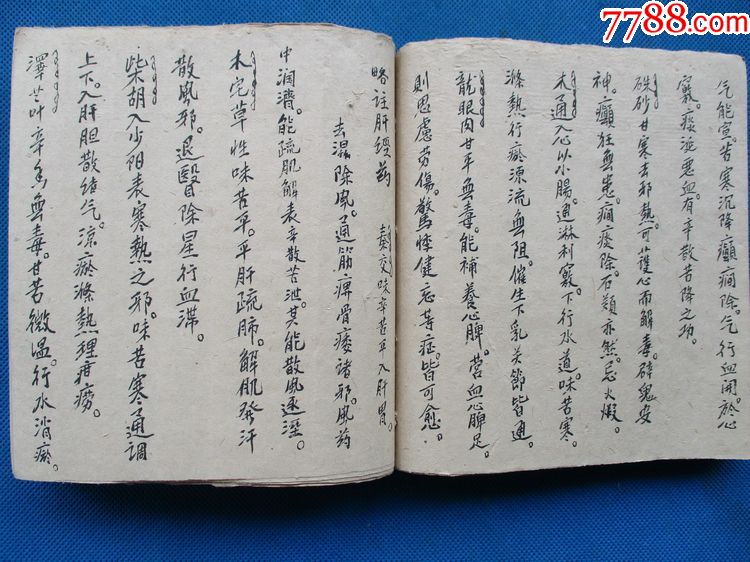 7788.com
气能宣。苦寒沉降癲癇除。气行血開於心
竅。痰逆惡血有辛散苦降之功。
硃砂甘寒去邪熱。可護心而解毒。辟鬼安
神。癲狂無患。癇痰除。石類亦然。忌火煅。
木通入心以小腸。通淋利竅。下行水道。味苦寒。
滌熱行瘀源流無阻。催生下乳关節皆通。
龍眼肉甘平無毒。能補養心脾。营血心脾足。
則思慮劳傷。驚悸健忘等症。皆可愈。
略註肝經药 秦艽味辛苦平入肝胃。
去濕除風。通筋痺骨痿诸邪。風药
中润濟。能疏肌解表辛散苦泄。其能散風逐溼。
木宅草性味苦平。平肝疏肺。解肌發汗
散風邪。退翳除星行血滞。
柴胡入少阳表寒熱之邪。味苦寒通調
上下。入肝胆散结气。凉瘀滌熱理疳痨。
澤兰叶辛香無毒。甘苦微温。行水消瘀。